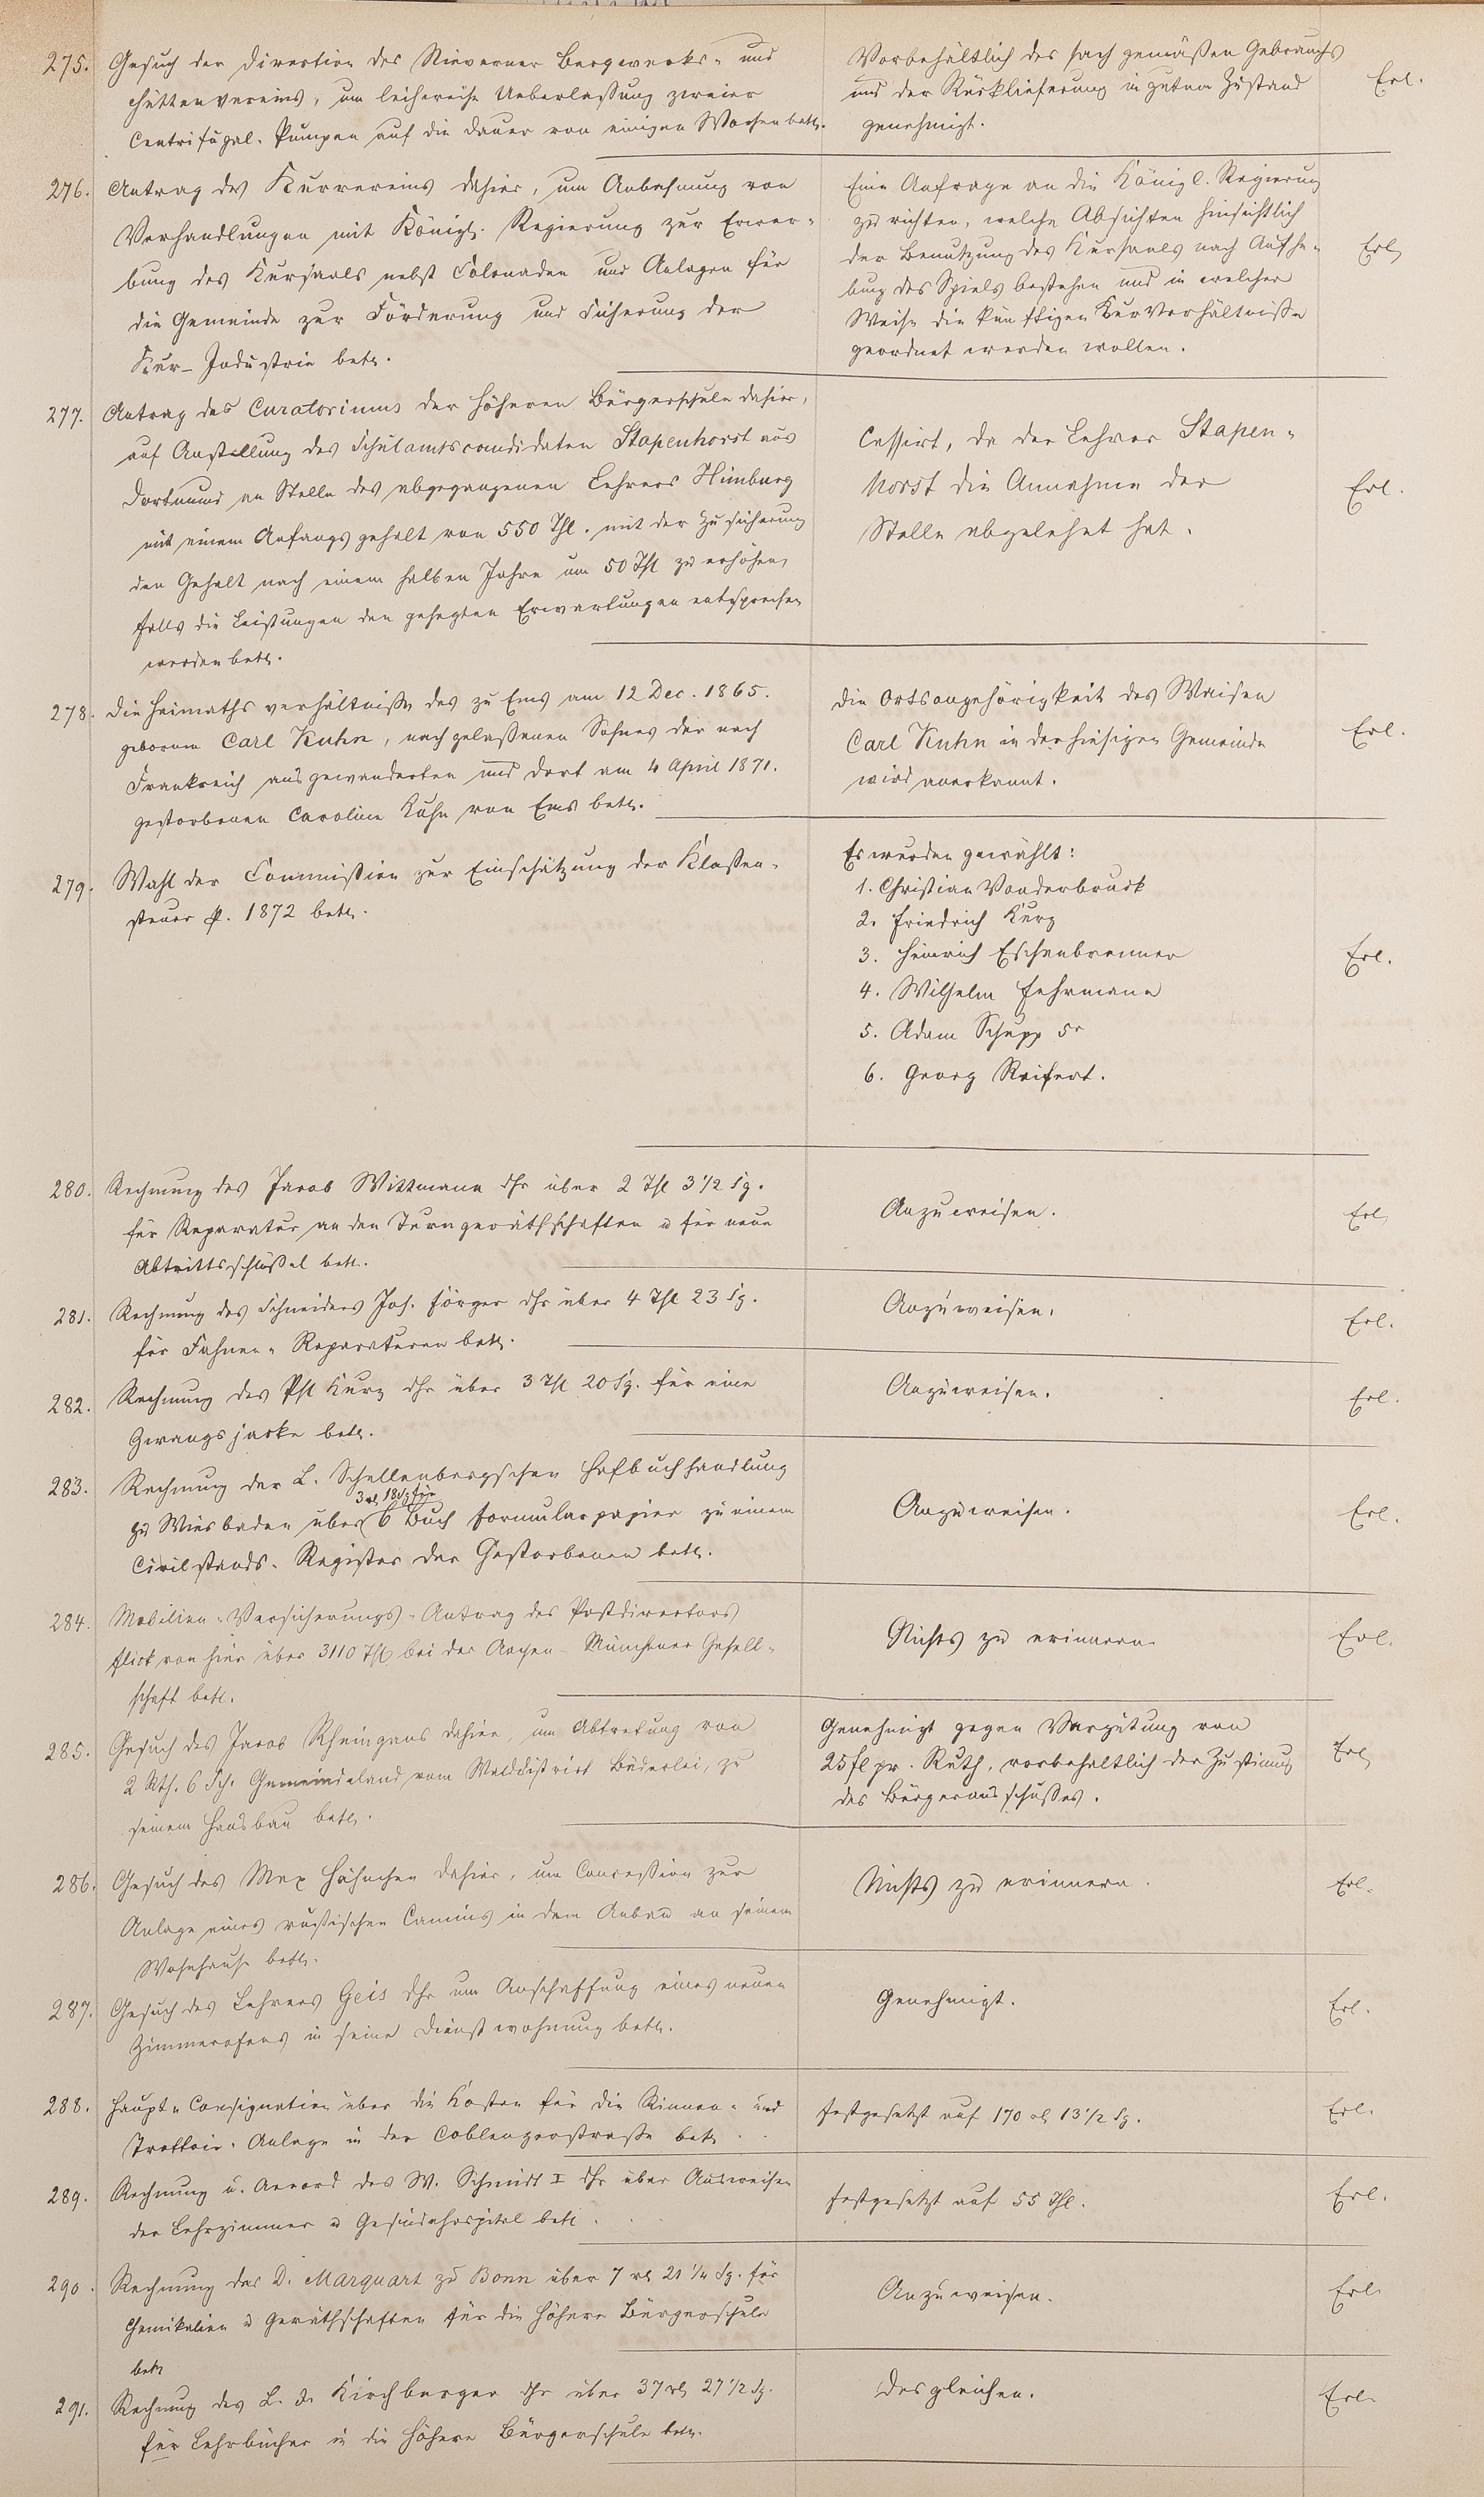 275. Gesuch der Direction des Nieverner Bergwerks- und
Hüttenvereins, um leihweise Ueberlaßung zweier
Centrifugal-Pumpen auf die Dauer von einigen Wochen betr.
Vorbehältlich des sach gemäßen Gebrauchs
und der Rücklieferung in gutem Zustand
genehmigt.
Erl.
276. Antrag des Kurvereins dahier, um Anbahnung von
Verhandlungen mit Königl. Regierung zur Erwer-
bung des Kursaals nebst Colonaden und Anlagen für
die Gemeinde zur Förderung und Sicherung der
Kur-Industrie betr.
Eine Anfrage an die Königl. Regierung
zu richten, welche Absichten hinsichtlich
der Benutzung des Kursaals nach Aufhe-
bung des Spiels bestehen und in welcher
Weise die künftigen Kurverhältniße
geordnet werden wollen.
Erl.
277. Antrag des Curatoriums der höheren Bürgerschule dahier,
auf Anstellung des Schulamtscandidaten Stapenhorst aus
Dortmund an Stelle des abgegangenen Lehrers Himburg
mit einem Anfangsgehalt von 550 Thl. mit der Zusicherung
den Gehalt nach einem halben Jahre um 50 Thl zu erhöhen,
falls die Leistungen den gehegten Erwartungen entsprechen
werden betr.
Cessirt, da der Lehrer Stapen-
horst die Annahme der
Stelle abgelehnt hat.
Erl.
278. Die Heimathsverhältniße des zu Ems am 12 Dec. 1865.
geborenen Carl Kuhn, nachgelaßenen Sohnes der nach
Frankreich ausgewanderten und dort am 4 April 1871.
gestorbenen Caroline Kuhn von Ems betr.
Die Ortsangehörigkeit des Waisen
Carl Kuhn in der hiesigen Gemeinde
wird anerkannt.
Erl.
279. Wahl der Commißion zur Einschätzung der Klaßen-
steuer p. 1872 betr.
Es wurden gewählt:
1. Christian Vonderbruck
2. Friedrich Kurz
3. Heinrich Eschenbrenner
4. Wilhelm Fuhrmann
5. Adam Schupp 5r
6. Georg Reifert.
Erl.
280. Rechnung des Jacob Wittmann dhr über 2 Thl 3 1/2 Sg.
für Reparatur an den Turngeräthschaften u für neue
Abtrittsschlüßel betr.
Anzuweisen.
Erl.
281. Rechnung des Schneiders Jos. Jörges dhr über 4 Thl 23 Sg.
für Fahnen-Reparaturen betr.
Anzuweisen.
Erl.
282. Rechnung des Phl Kurz dhr über 3 Thl 20 Sg. für eine
Zwangsjacke betr.
Anzuweisen.
Erl.
283. Rechnung der L. Schellenbergschen Hofbuchhandlung
3 rl. 18 Sg für
zu Wiesbaden über 6 Buch Formularpapier zu einem
Civilstands-Register der Gestorbenen betr.
Anzuweisen.
Erl.
284. Mobilien-Versicherungs-Antrag des Postdirectors
Flick von hier über 3110 Thl bei der Aachen-Münchner Gesell-
schaft betr.
Nichts zu erinnern.
Erl.
285. Gesuch des Jacob Rheingans dahier, um Abtretung von
2 Rth. 6 Sch. Gemeindeland, vom Walddistrict Bäderlei, zu
seinem Hausbau betr.
Genehmigt gegen Vergütung von
25 fl pr. Ruth, vorbehaltlich der Zustimung
des Bürgerausschußes.
Erl.
286. Gesuch des Max Hähnchen dahier, um Concession zur
Anlage eines rußischen Camins in dem Anbau an seinem
Wohnhause betr.
Nichts zu erinnern.
Erl.
287. Gesuch des Lehrers Geis dhr um Anschaffung eines neuen
Zimmerofens in seine Dienstwohnung betr.
Genehmigt.
Erl.
288. Haupt-Consignation über die Kosten für die Rinnen- und
Trottoir-Anlage in der Coblenzerstraße betr.
Festgesetzt auf 170 rl 13 1/2 Sg.
Erl.
289. Rechnung u. Accord des W. Schmidt I dhr über Ausweißen
der Lehrzimmer u Gesindehospital betr.
Festgesetzt auf 55 Thl.
Erl.
290. Rechnung des D. Marquart zu Bonn über 7 rl 21 1/4 Sg. für
Chemikalien u Geräthschaften für die höhere Bürgerschule
betr
Anzuweisen.
Erl.
291. Rechnung des L. J. Kirchberger dhr über 37 rl 27 1/2 Sg.
für Lehrbücher in die höhere Bürgerschule betr.
Desgleichen.
Erl.